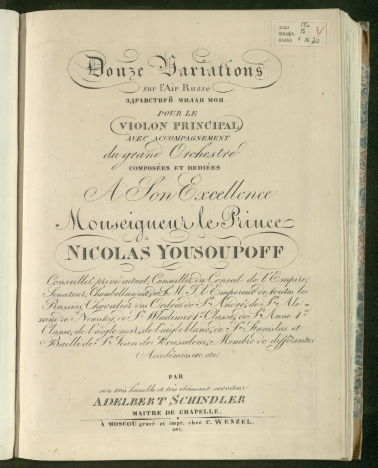 Douze Variations
sur l'Air Russe
ЗДРАВСТВУЙ МИЛАЯ МОЯ
POUR LE
VIOLON PRINCIPAL
AVEC ACCOMPAGNEMENT
du grand Orchestre
COMPOSÉES ET DEDIÉES
A Son Excellence
Monseigneur le Prince
NICOLAS YOUSOUPOFF
Conseiller privé actuel, Conseiller du Conseil de l'Empire,
Senateur, Chambellan de S. M. I. l'Empereur de toutes les
Russies, Chevalier des Ordres de St. André, de St. Ale-
xandre Newsky, de St. Wladimir 1re Classe, de St. Anne 1re
Classe, de l'aigle noir, de l'aigle blanc, de St. Stanislas et
Bailli de St. Jean de Jerusalem, Membre de différentes
Académies etc. etc.
PAR
son très humble et très obeissant serviteur
ADELBERT SCHINDLER
MAITRE DE CHAPELLE.
A MOSCOU gravé et impr. chez C. WENZEL.